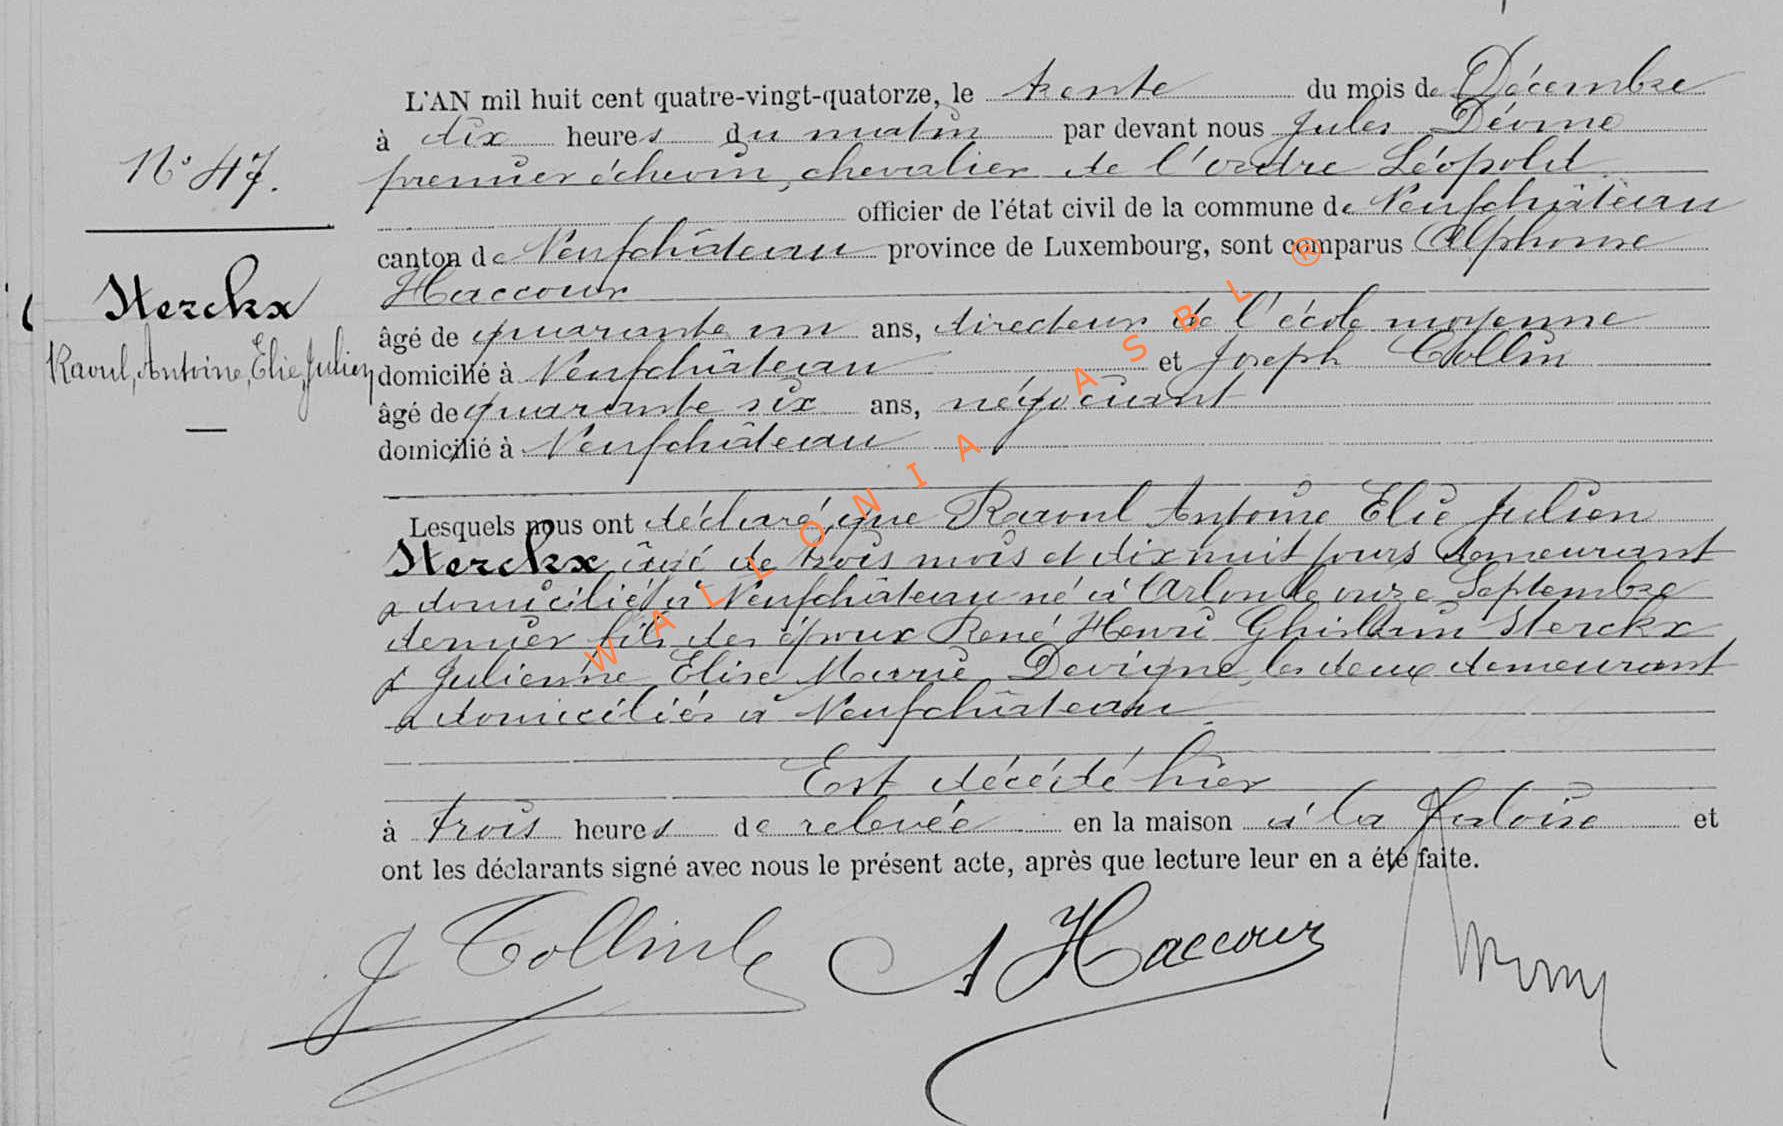 L'AN mil huit cent quatre-vingt-quatorze, le trente du mois de Décembre
à dix heures du matin par devant nous Jules
N° 47.
premier échevin, chevalier de l'ordre Léopold
officier de l'état civil de la commune de Neufchâteau
canton de Neufchâteau province de Luxembourg, sont comparus Alphonse
Haccour
Sterckx
Raoul, Antoine, Elie, Julien
âgé de quarante un ans, directeur de l'école moyenne
domicilié à Neufchâteau et Joseph Collin
âgé de quarante six ans, négociant
domicilié à Neufchâteau
Lesquels nous ont déclaré que Raoul Antoine Elie Julien
Sterckx âgé de trois mois et dix huit jours demeurant
& domicilié à Neufchâteau né à Arlon le onze Septembre
dernier fils des époux René Henri Ghislain Sterckx
& Julienne Elise Marie Devigne, les deux demeurant
& domiciliés à Neufchâteau.
Est décédé hier
à trois heures de relevée en la maison à la et
ont les déclarants signé avec nous le présent acte, après que lecture leur en a été faite.
J Collin A Haccour
WALLONIA ASBL ®